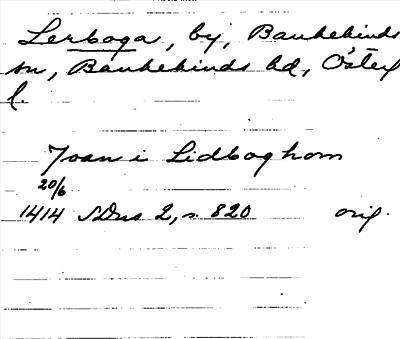 Lerboga, by, Bankekinds
sn, Bankekinds hd, Österg
l.
Joan i Lidboghom
20/6
1414 SDns 2, s. 820 orig.